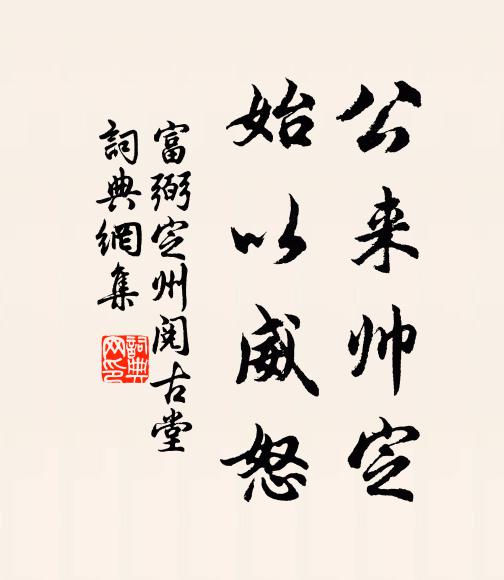 公来帅定
始以威怒
富弼定州阅古堂
詞典網集
詞典
网印